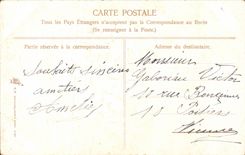 CARTE POSTALE
Tous les Pays Étrangers n'acceptent pas la Correspondance au Recto
(Se renseigner à la Poste).
Partie réservée à la correspondance.
Adresse du destinataire.
Souhaits sincères
amitiés
Amélie
Monsieur
Victor
17 rue
Poitiers
Vienne